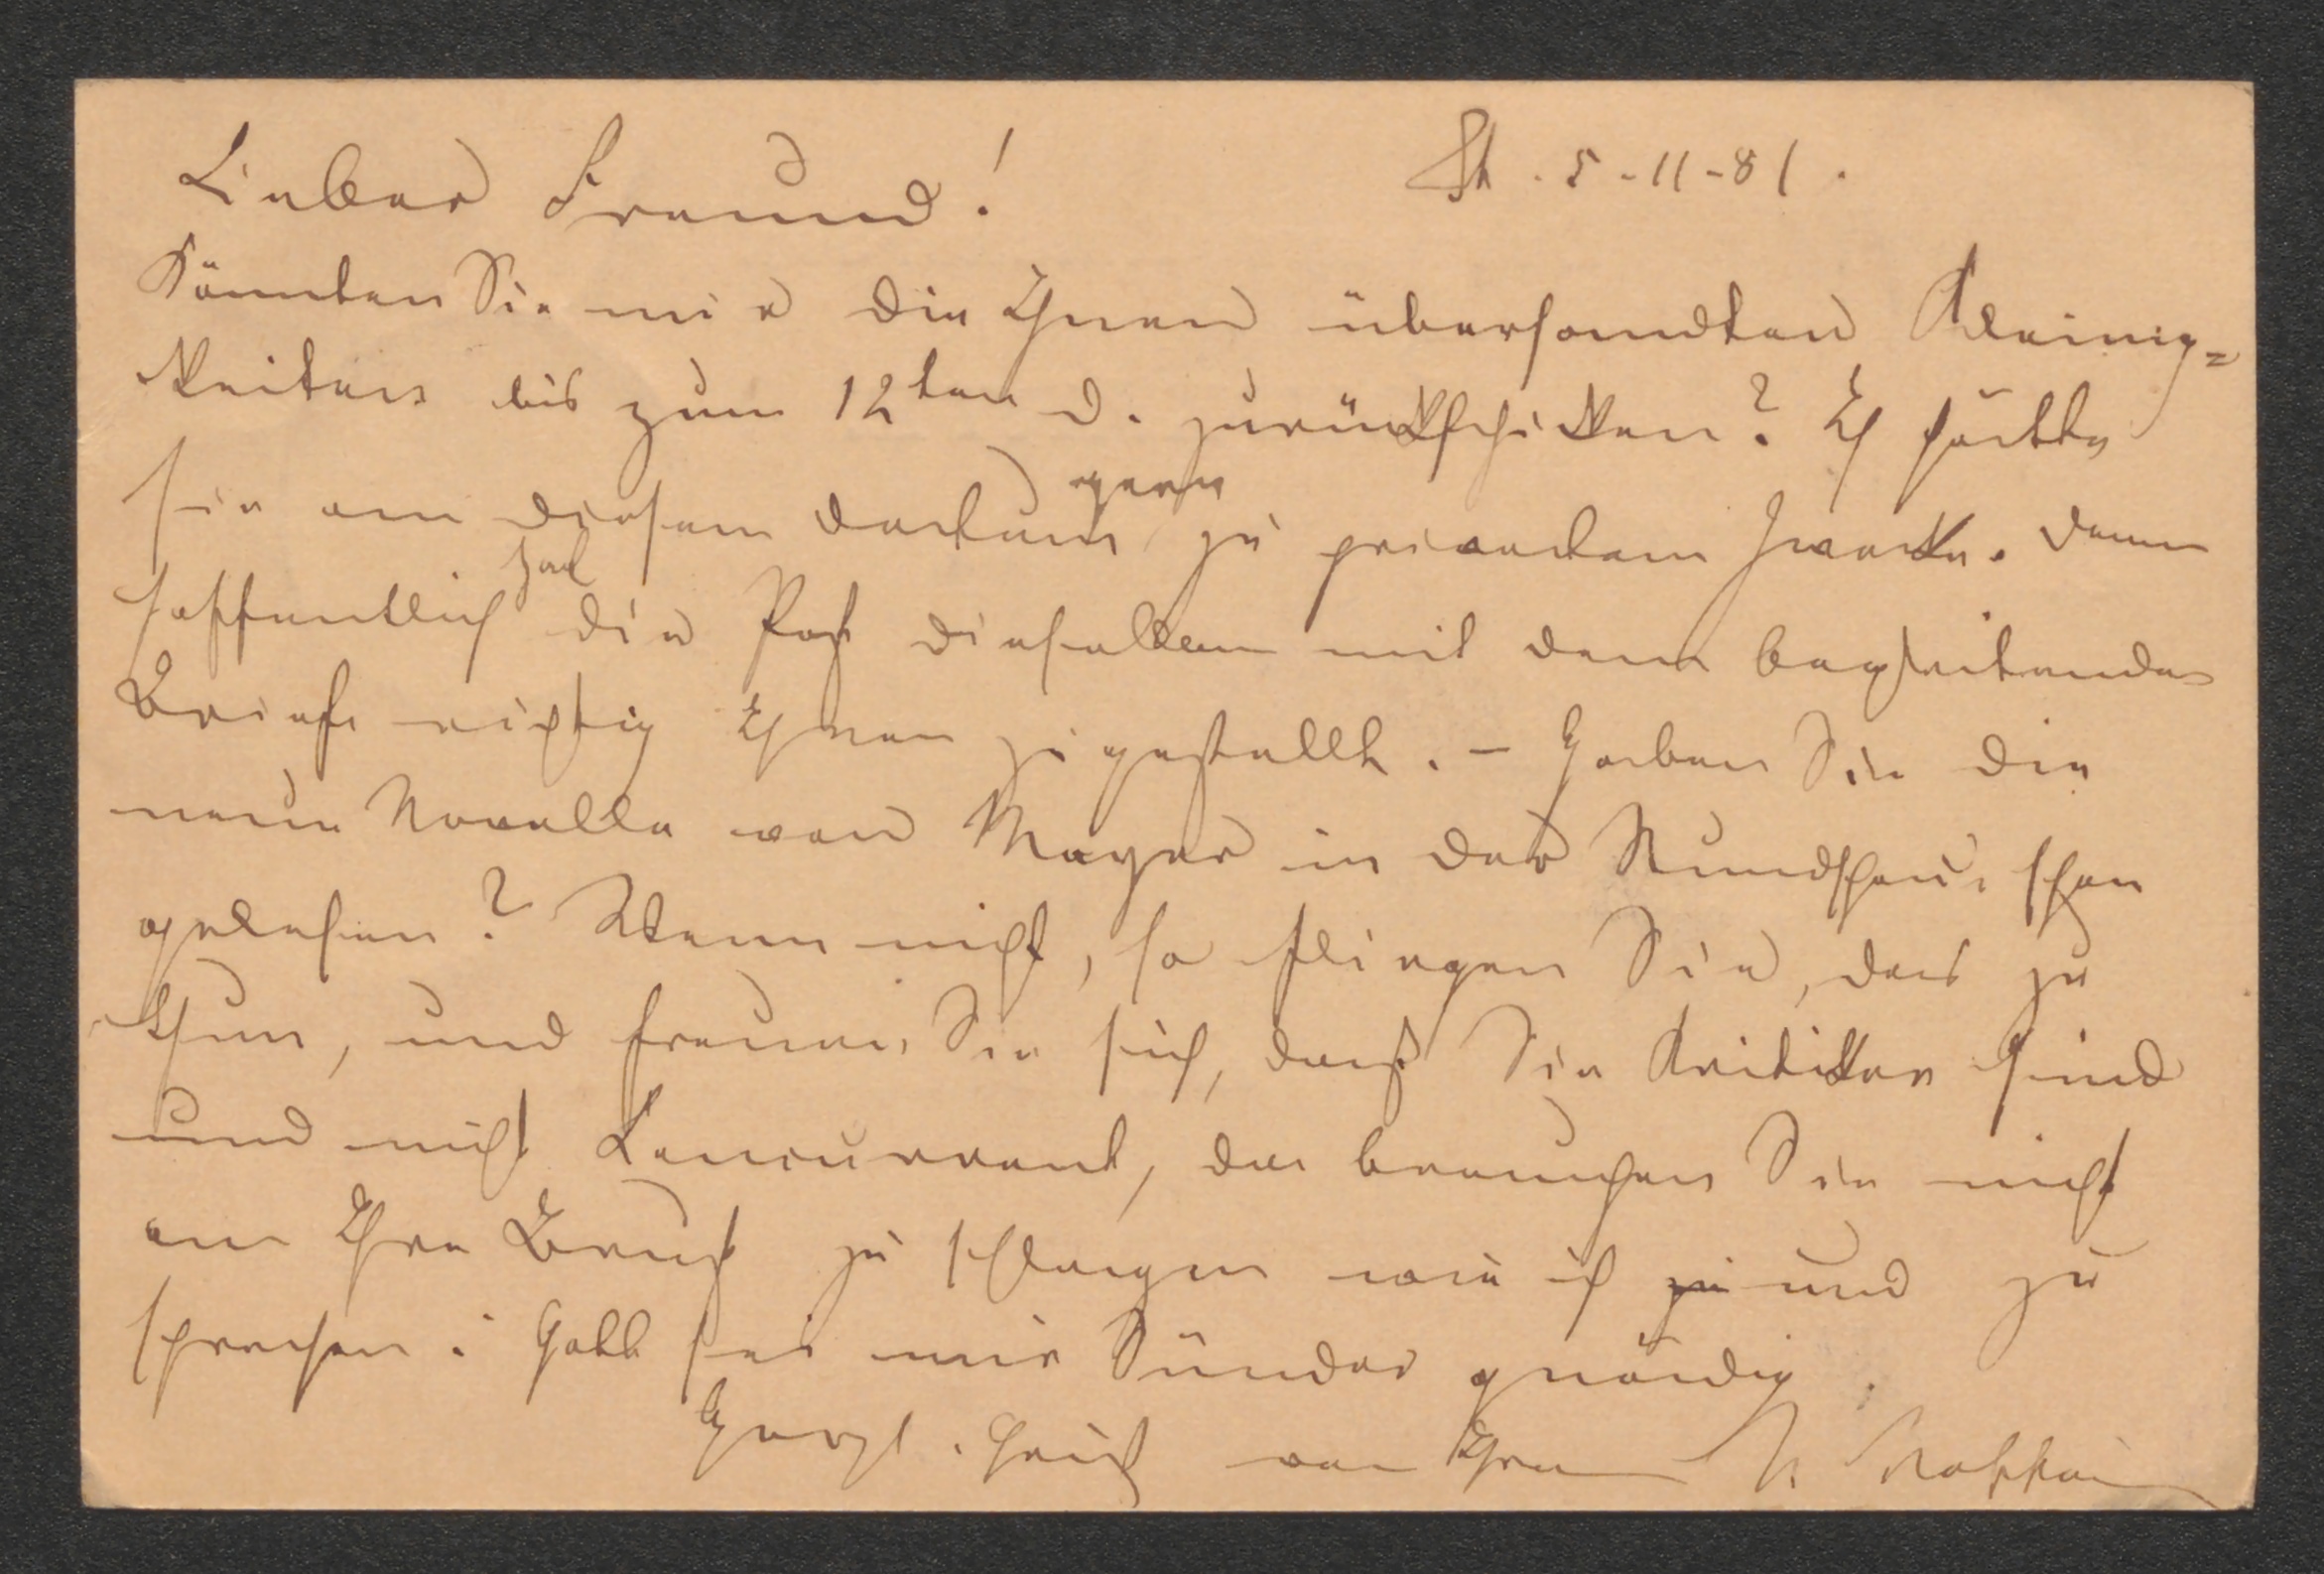 Lieber Freund! St. 5-11-81.
Könnten Sie mir die Ihnen übersandten Kleinig=
keiten bis zum 12ten d. zurückschicken? Ich hätte
sie an diesem Datum gern zu privatem Zwecke. Denn
hoffentlich hat die Post dieselben mit dem begleitenden
Briefe richtig Ihnen zugestellt. – Haben Sie die
neue Novelle von Meyer in der Rundschau schon
gelesen? Wenn nicht, so fliegen Sie, das zu
thun, und freuen Sie sich, daß Sie Kritiker sind
und nicht Concurrent, da brauchen Sie nicht
an Ihre Brust zu schlagen wie ich zu und zu
sprechen: Gott sei mir Sünder gnädig.
Herzl. Gruß von Ihrem